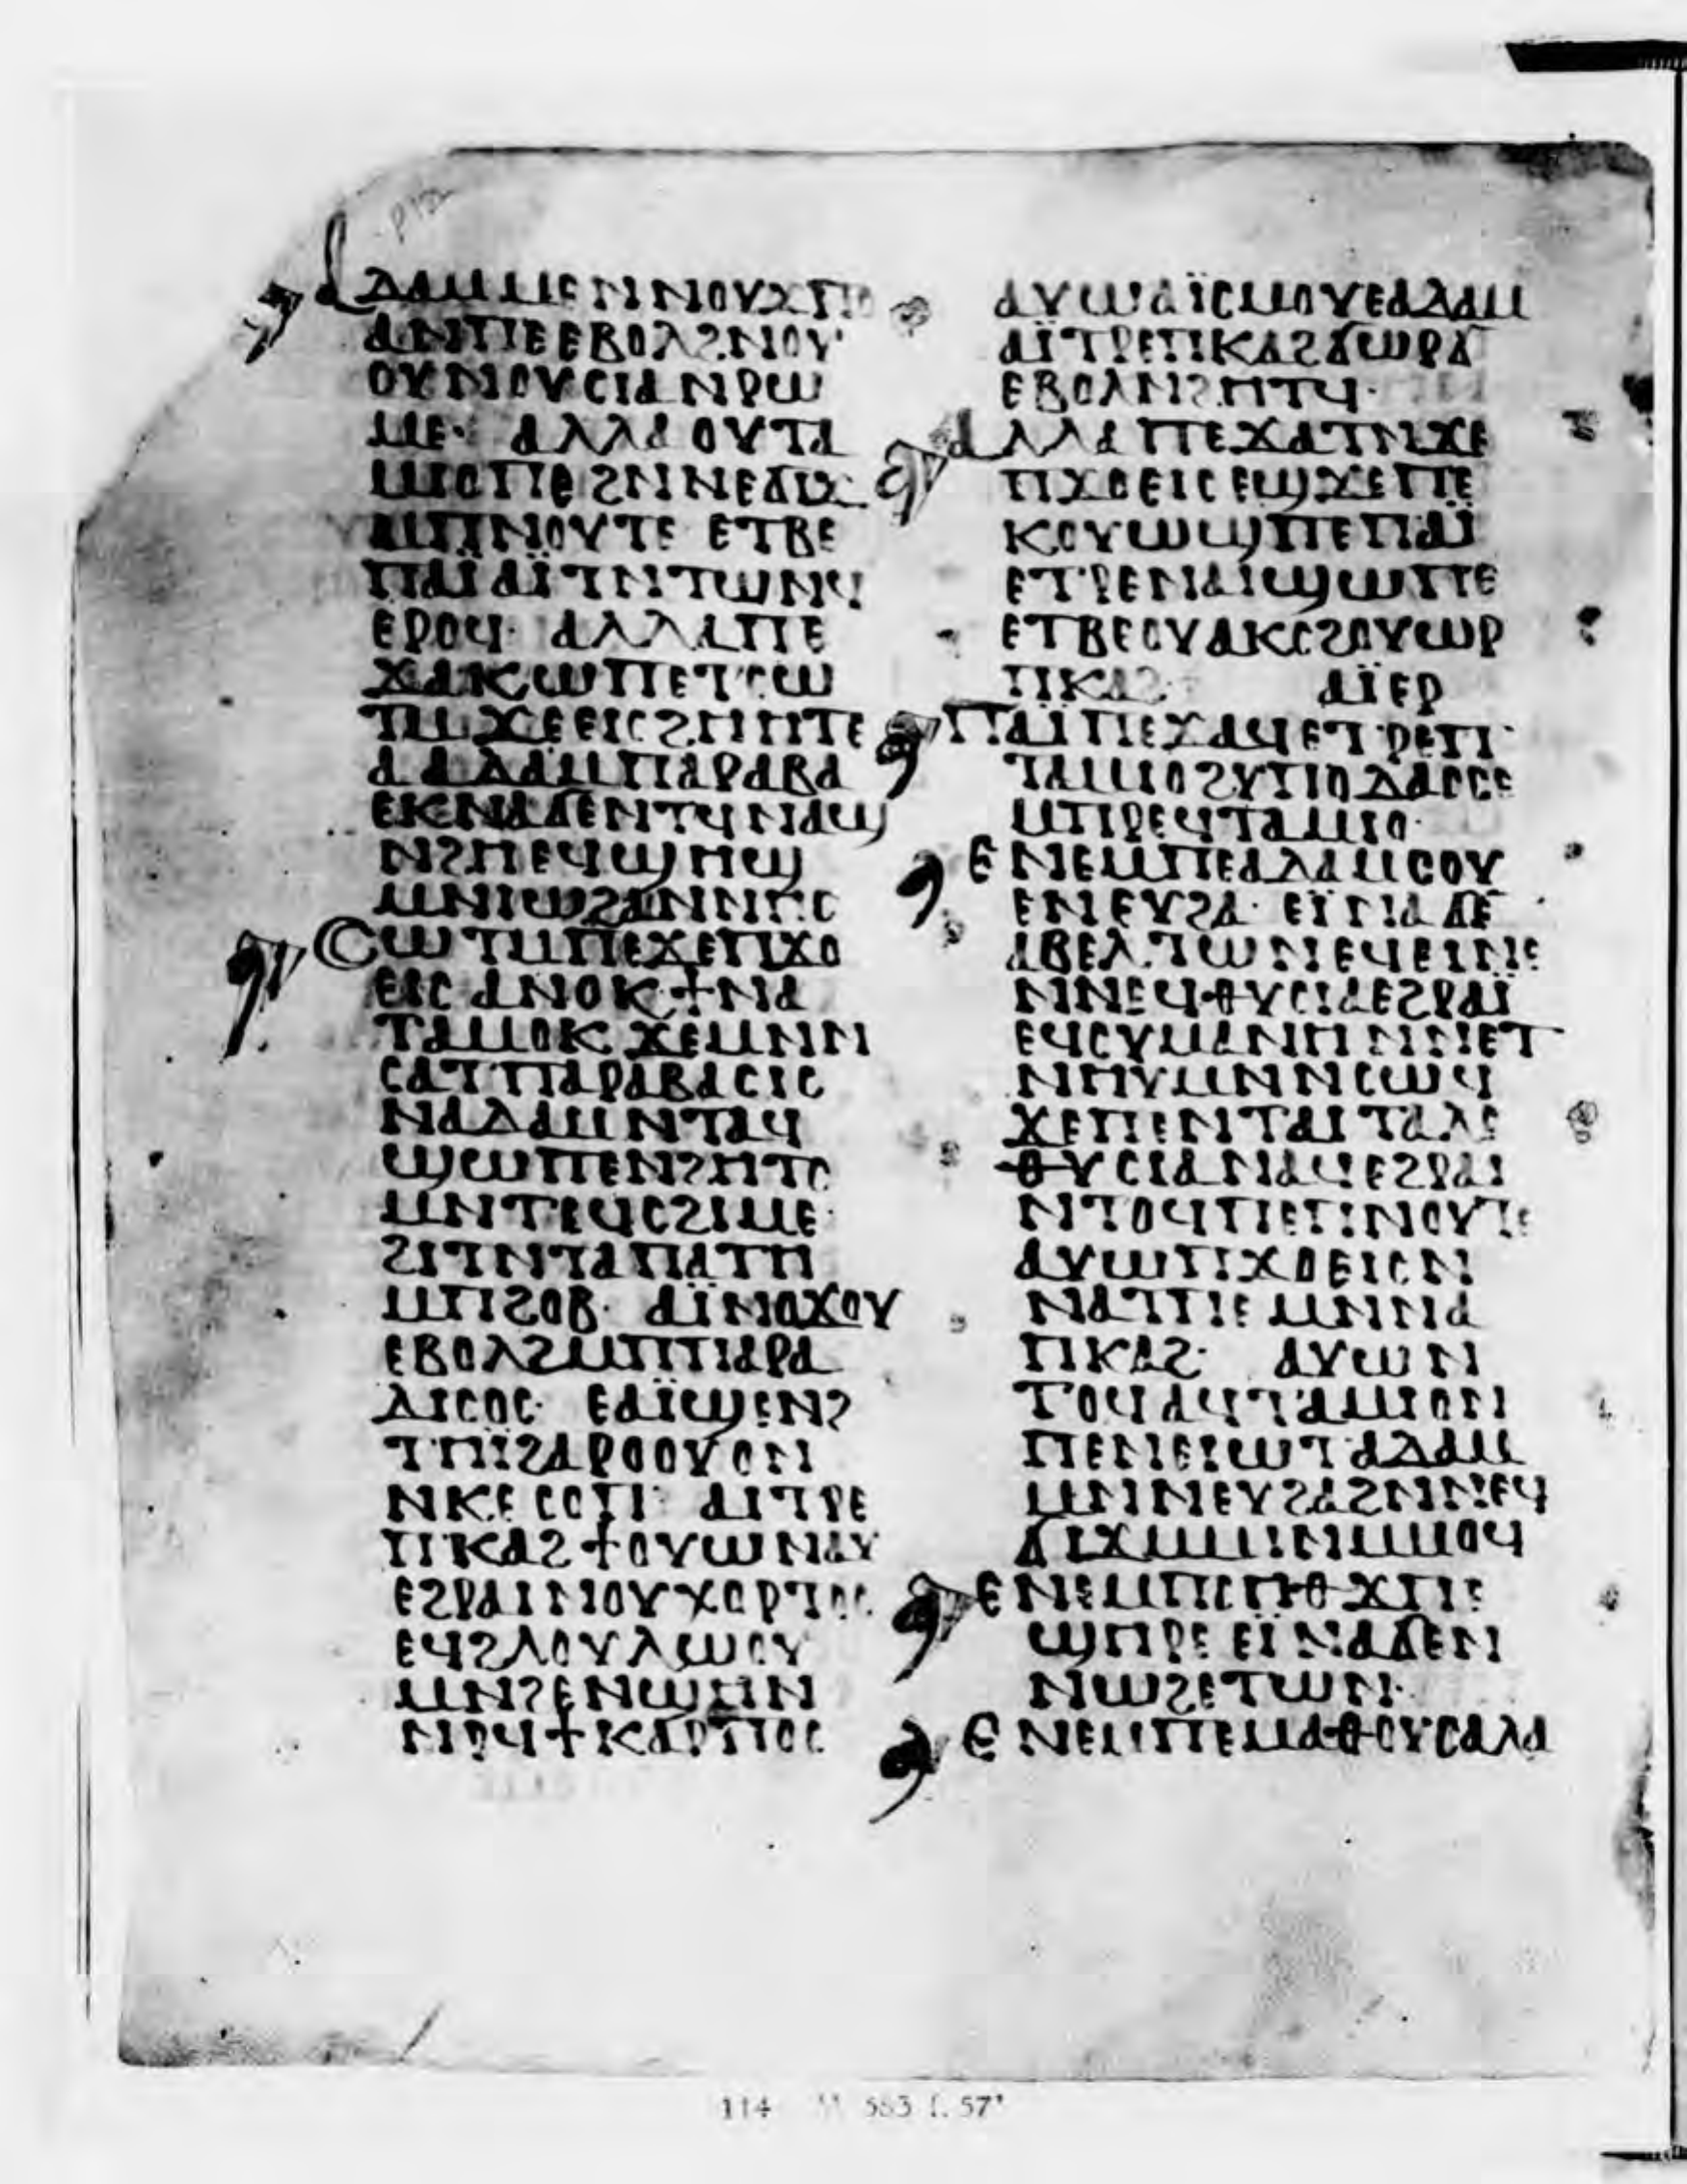 ⲁⲇⲁⲙ ⲙⲉⲛ ⲛⲟⲩϫⲡⲟ
ⲁⲛ ⲡⲉ ⲉⲃⲟⲗ ϩⲛ ⲟⲩ
ⲟⲩⲛⲟⲩⲥⲓⲁ ⲛⲣⲱ
ⲙⲉ· ⲁⲗⲗⲁ ⲟⲩⲧⲁ
ⲙⲓⲟ ⲡⲉ ϩⲛ ⲛⲉϭⲓϫ
ⲙⲡⲛⲟⲩⲧⲉ ⲉⲧⲃⲉ
ⲡⲁⲓ̈ ⲁⲓ̈ⲧⲛⲧⲱⲛϥ
ⲉⲣⲟϥ· ⲁⲗⲗⲁ ⲡⲉ
ϫⲁⲕ ⲱ ⲡⲉⲧⲥⲱ
ⲧⲙ ϫⲉ ⲉⲓⲥ ϩⲏⲏⲧⲉ
ⲁ ⲁⲇⲁⲙ ⲡⲁⲣⲁⲃⲁ
ⲉⲕⲛⲁϭⲉⲛⲧϥ ⲛⲁϣ
ⲛϩⲉ ⲉϥϣⲏϣ
ⲙⲛ ⲓⲱϩⲁⲛⲛⲏⲥ
ⲥⲱⲧⲙ ⲡⲉϫⲉ ⲡϫⲟ
ⲉⲓⲥ ⲁⲛⲟⲕ ϯⲛⲁ
ⲧⲁⲙⲟⲕ ϫⲉ ⲙⲛⲛ
ⲥⲁ ⲧⲡⲁⲣⲁⲃⲁⲥⲓⲥ
ⲛⲁⲇⲁⲙ ⲛⲧⲁϥ
ϣⲱⲡⲉ ⲛϩⲏⲧⲥ
ⲙⲛ ⲧⲉϥⲥϩⲓⲙⲉ·
ϩⲓⲧⲛ ⲧⲁⲡⲁⲧⲏ
ⲙⲡϩⲟϥ· ⲁⲓ̈ⲛⲟϫⲟⲩ
ⲉⲃⲟⲗ ϩⲙ ⲡⲡⲁⲣⲁ
ⲇⲓⲥⲟⲥ· ⲉⲁⲓ̈ϣⲉⲛϩ
ⲧⲏⲓ̈ ϩⲁⲣⲟⲟⲩ ⲟⲛ
ⲛⲕⲉⲥⲟⲡ· ⲁⲓⲧⲣⲉ
ⲡⲕⲁϩ ϯⲟⲩⲱ ⲛⲁⲩ
ⲉϩⲣⲁⲓ ⲛⲟⲩⲭⲟⲣⲧⲟⲥ
ⲉϥϩⲗⲟⲩⲗⲱⲟⲩ
ⲙⲛ ϩⲉⲛϣⲏⲛ
ⲛⲣⲉϥϯⲕⲁⲣⲡⲟⲥ
ⲁⲩⲱ ⲁⲓ̈ⲥⲙⲟⲩ ⲉⲁⲇⲁⲙ
ⲁⲓ̈ⲧⲣⲉ ⲡⲕⲁϩ ϭⲱⲣϭ
ⲉⲃⲟⲗ ⲛϩⲏⲧϥ·
ⲁⲗⲗⲁ ⲡⲉϫⲁⲓ ⲛⲁϥ ϫⲉ
ⲡϫⲟⲉⲓⲥ ⲉϣϫⲉ ⲡⲉ
ⲕⲟⲩⲱϣ ⲡⲉ ⲡⲁⲓ̈
ⲉⲧⲣⲉ ⲛⲁⲓ ϣⲱⲡⲉ
ⲉⲧⲃⲉ ⲟⲩ ⲁⲕⲥϩⲟⲩⲱⲣ
ⲡⲕⲁϩ ⲁⲓ̈ⲉⲣ
ⲡⲁⲓ̈ ⲡⲉϫⲁϥ ⲉⲧⲣⲉ ⲡ
ⲧⲁⲙⲓⲟ ϩⲩⲡⲟⲇⲁⲥⲥⲉ
ⲙⲡⲣⲉϥⲧⲁⲙⲓⲟ·
ⲉⲛⲉⲙⲡⲉ ⲁⲇⲁⲙ ⲥⲟⲩ
ⲉⲛ ⲉⲩϩⲁ· ⲉⲓ̈ⲛⲁϭⲉ
ⲁⲃⲉⲗ ⲧⲱⲛ ⲉϥⲉⲓⲛⲉ
ⲛⲛⲉϥⲑⲩⲥⲓⲁ ⲉϩⲣⲁⲓ̈
ⲉϥⲥⲩⲙⲁⲛⲏ ⲛⲛⲉⲧ
ⲛⲏⲩ ⲙⲛⲛⲥⲱϥ
ϫⲉ ⲡⲉⲛⲧⲁⲓⲧⲁⲗⲉ
ⲑⲩⲥⲓⲁ ⲛⲁϥ ⲉϩⲣⲁⲓ
ⲛⲧⲟϥ ⲡⲉ ⲡⲛⲟⲩⲧⲉ
ⲁⲩⲱ ⲡϫⲟⲉⲓⲥ ⲛ
ⲛⲁⲧⲡⲉ ⲙⲛ ⲛⲁ
ⲡⲕⲁϩ· ⲁⲩⲱ ⲛ
ⲧⲟϥ ⲁϥⲧⲁⲙⲓⲟ ⲙ
ⲡⲉⲛⲉⲓⲱⲧ ⲁⲇⲁⲙ
ⲙⲛ ⲛⲉⲩϩⲁ ϩⲛ ⲛⲉϥ
ϭⲓϫ ⲙⲙⲓⲛ ⲙⲙⲟϥ
ⲉⲛⲉⲙⲡⲉ ⲥⲏⲑ ϫⲡⲉ
ϣⲏⲣⲉ ⲉⲓ̈ⲛⲁϭⲉⲛ
ⲛⲱϩⲉ ⲧⲱⲛ·
ⲉⲛⲉⲙⲡⲉ ⲙⲁⲑⲟⲩⲥⲁⲗⲁ